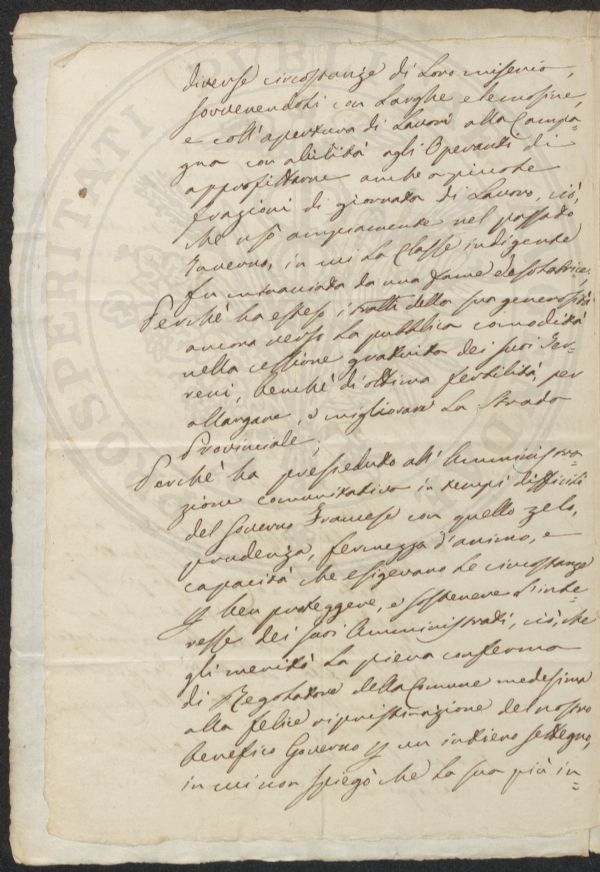 diverse circostanze di loro miseria,
sovvenendoli con larghe elemosine,
e coll'apertura di Lavori alla Campa=
gna con abilità agli Operanti di
approfittare anche a piccole
frazioni di giornata di Lavoro, ciò,
che usò ampiamente nel passato
Inverno, in cui la Classe indigente
fu minacciata da una fame desolatrice,
Perchè ha esteso i tratti della sua generosità
ancora verso la pubblica comodità
nella cessione gratuita dei suoi Ter=
reni, benchè di ottima fertilità, per
allargare, e migliorare la Strada
Provinciale;
Perchè ha presieduto all'Amministra=
zione comunitativa in tempi difficili
del Governo Francese con quello zelo,
prudenza, fermezza d'animo, e
capacità che esigevano le circostanze
p ben proteggere, e sostenere l'inte=
resse dei suoi Amministrati, ciò, che
gli meritò la piena conferma
di Regolatore della Comune medesima
alla felice ripristinazione del nostro
benefico Governo p un intiero
in cui non spiegò che la sua più in=
PROSPERITATI PUBLICAE